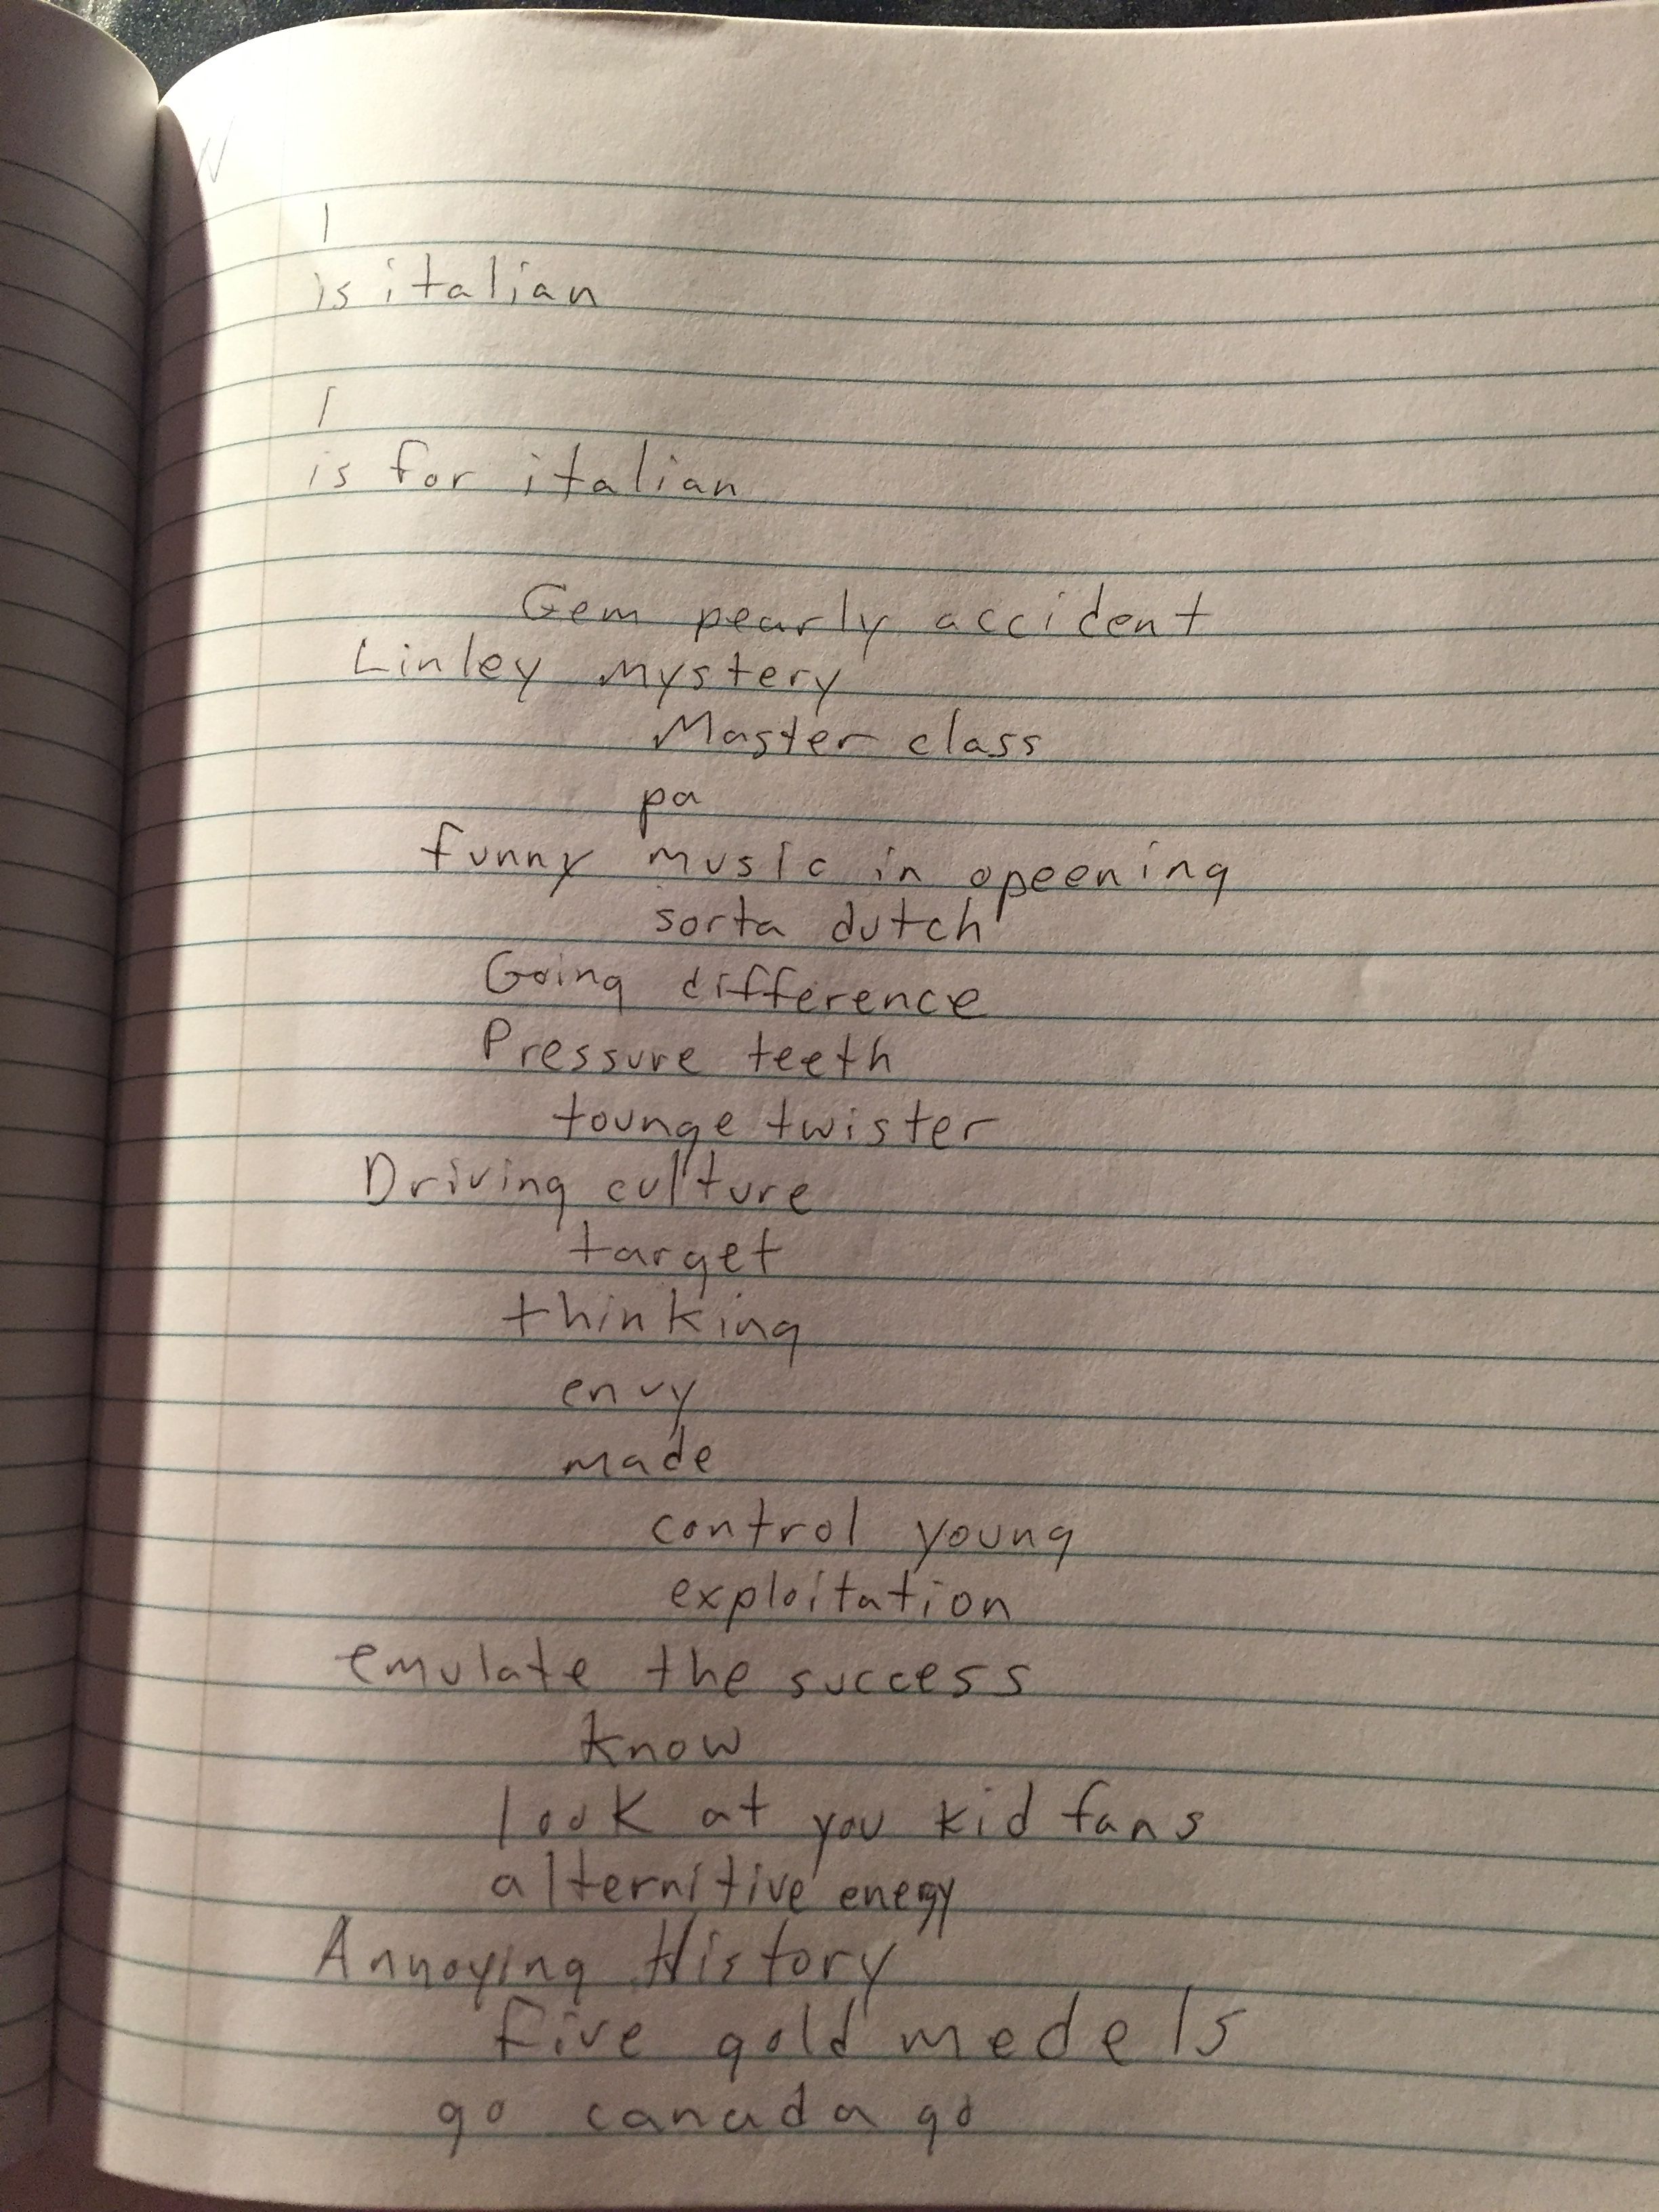 I
is italian
I
is for italian
Gem pearly accident
Linley mystery
Master class
pa
funny music in opeening
sorta dutch
Going difference
Pressure teeth
tounge twister
Driving culture
target
thinking
envy
made
control young
exploitation
emulate the success
know
look at you kid fans
alternitive energy
Annoying History
five gold medels
go canada go